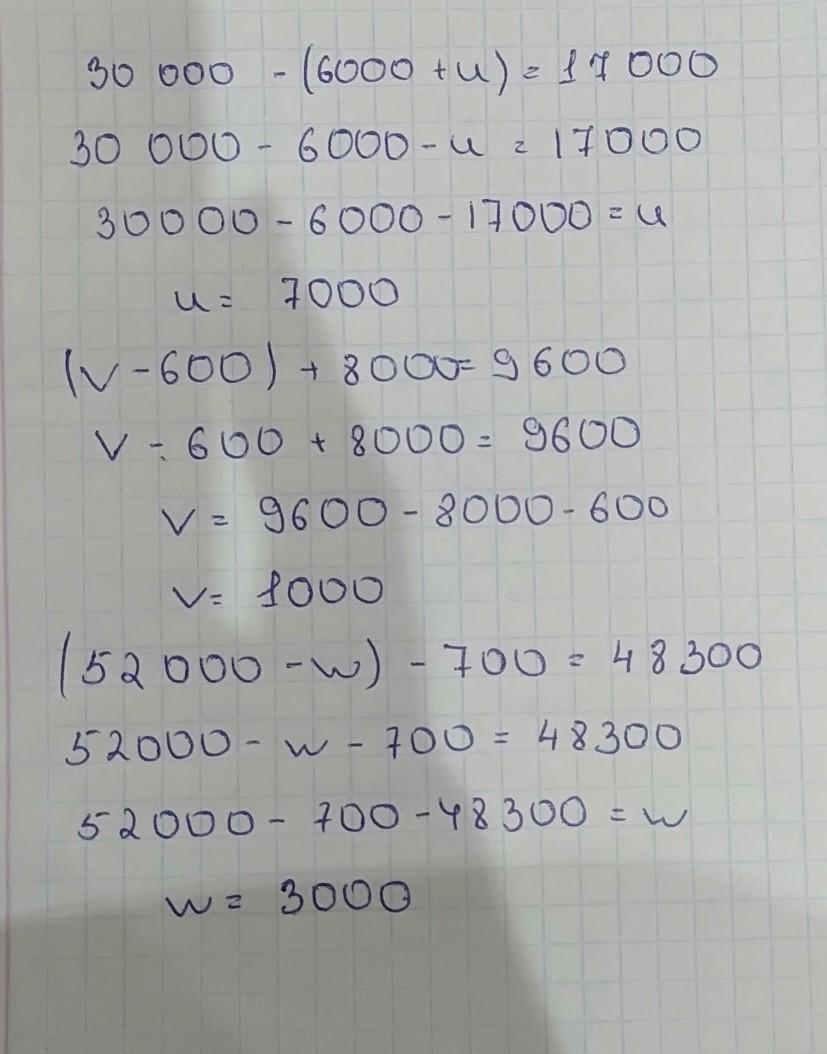 30 000 - (6000 + u) = 17 000
30 000 - 6000 - u = 17000
30000 - 6000 - 17000 = u
u = 7000
(v - 600) + 8000 = 9600
v - 600 + 8000 = 9600
v = 9600 - 8000 - 600
v = 1000
(52 000 - w) - 700 = 48300
52000 - w - 700 = 48300
52000 - 700 - 48300 = w
w = 3000